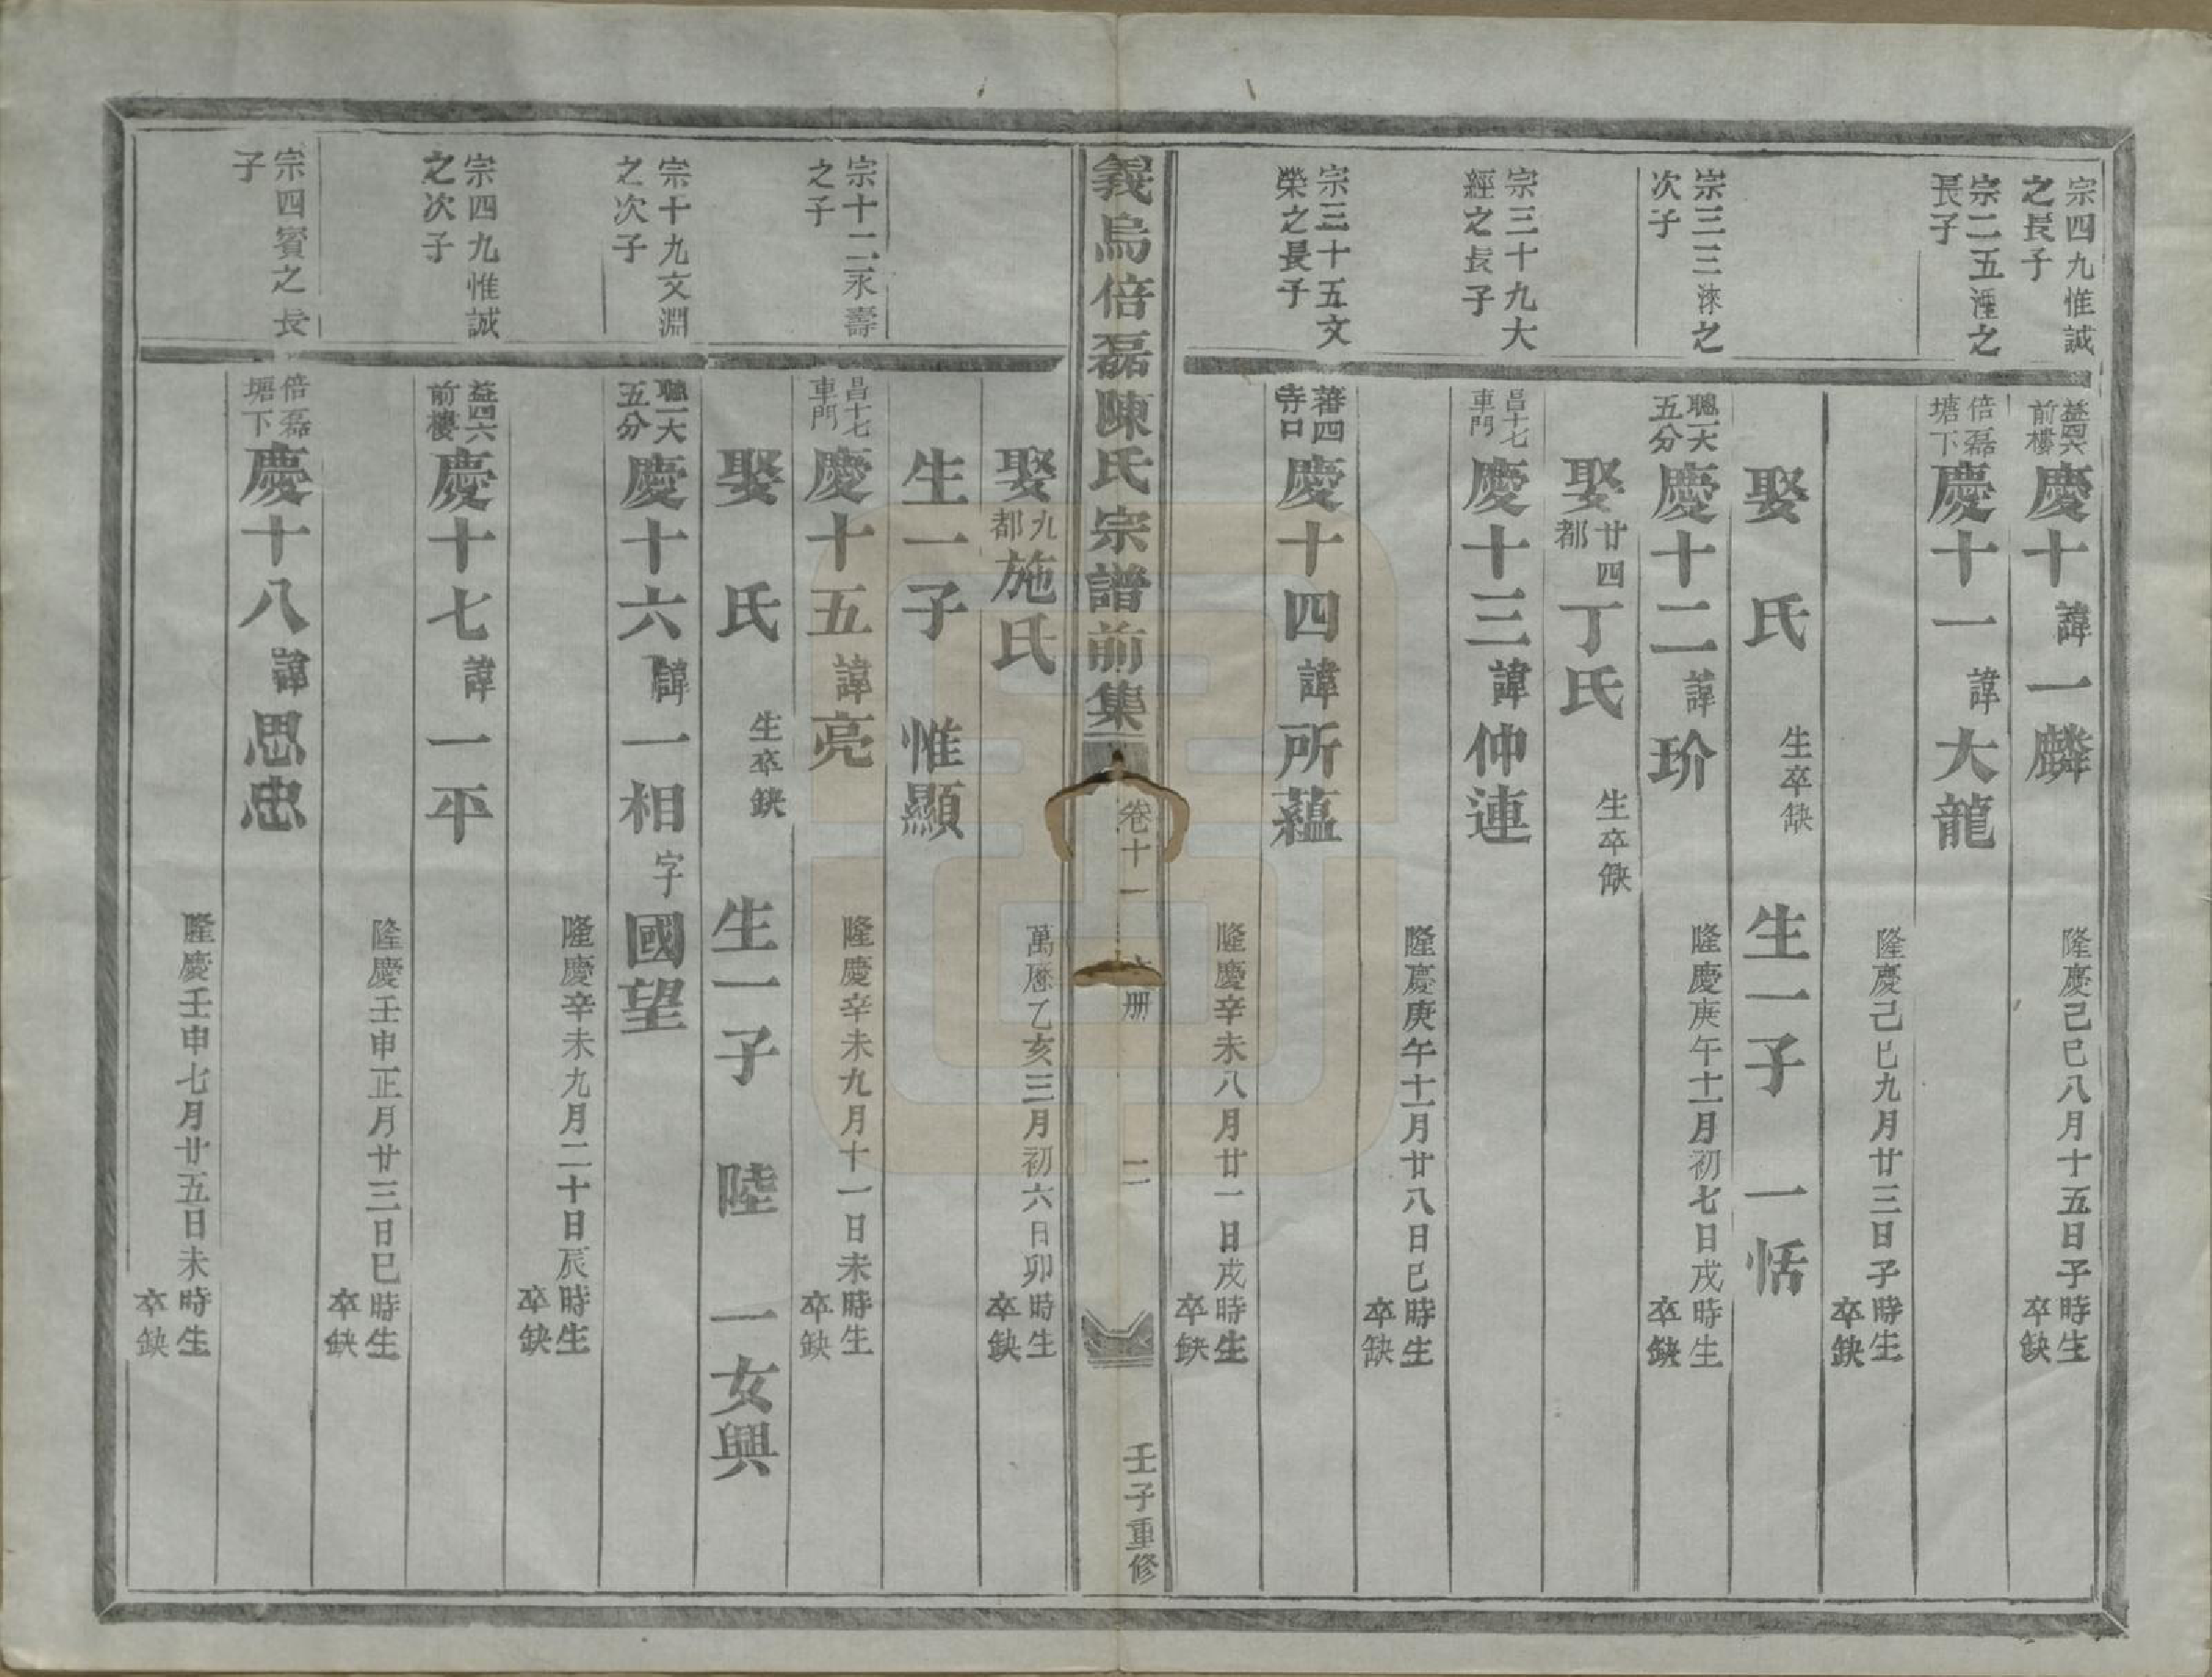 宗四九惟誠
之長子
益四六
前樓
慶十諱一麟
隆慶己巳八月十五日子時生
卒缺
宗二五湰之
長子
倍磊
塘下
慶十一諱大龍
隆慶己巳九月廿三日子時生
卒缺
娶 氏 生卒缺 生一子 一恬
宗三三淶之
次子
聰一大
五分
慶十二諱玠
隆慶庚午十一月初七日戌時生
卒缺
娶廿四
都
丁氏 生卒缺
宗三十九大
經之長子
昌十七
車門
慶十三諱仲連
隆慶庚午十一月廿八日巳時生
卒缺
宗三十五文
榮之長子
蕃四
寺口
慶十四諱所蘊
隆慶辛未八月廿一日戌時生
卒缺
義烏倍磊陳氏宗譜前集 卷十一 册 二 壬子重修
娶九
都
施氏
萬曆乙亥三月初六日卯時生
卒缺
生一子 惟顯
宗十二永壽
之子
昌十七
車門
慶十五諱亮
隆慶辛未九月十一日未時生
卒缺
娶 氏 生卒缺 生一子 陸 一女興
宗十九文淵
之次子
聰一大
五分
慶十六諱一相字國望
隆慶辛未九月二十日辰時生
卒缺
宗四九惟誠
之次子
益四六
前樓
慶十七諱一平
隆慶壬申正月廿三日巳時生
卒缺
宗四賓之長
子
倍磊
塘下
慶十八諱思忠
隆慶壬申七月廿五日未時生
卒缺